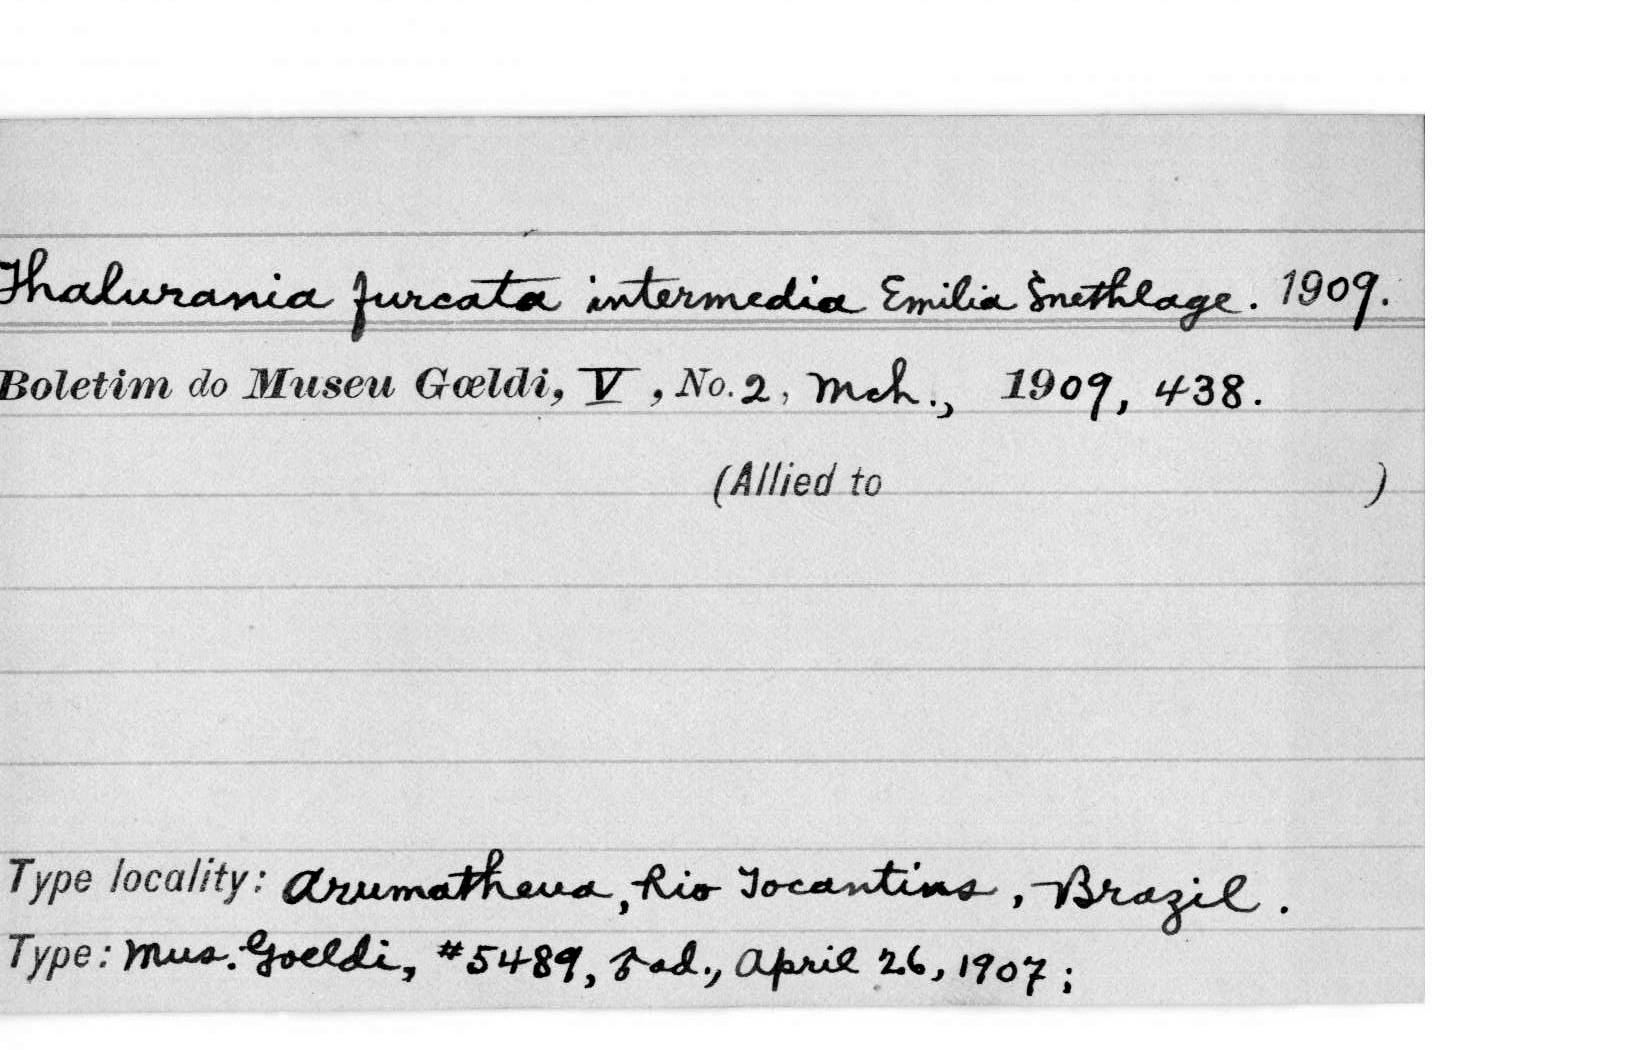 Thalurania furcata intermedia Emilia Snethlage. 1909.
Boletim do Museu Gœldi, V, No. 2, Mch., 1909, 438.
(Allied to )
Type locality: Arumatheua, Rio Tocantins, Brazil.
Type: Mus. Goeldi, #5489, ♂ ad., April 26, 1907;